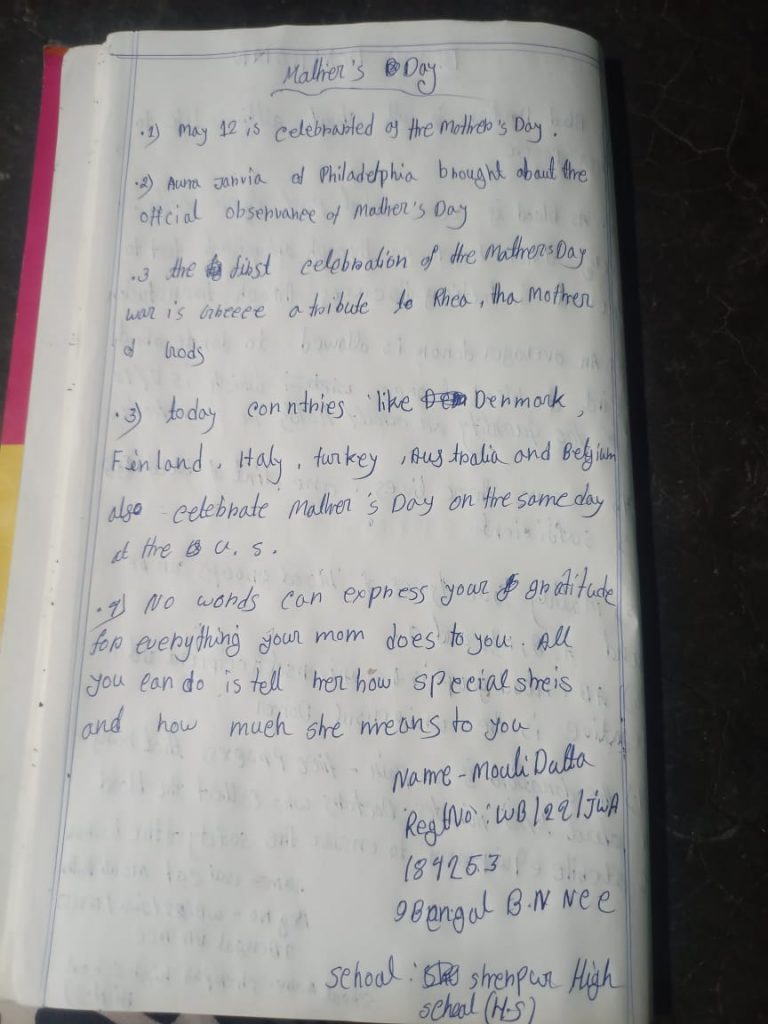 Mather's Day
.1) May 12 is celebrabted of the Mothers's Day.
.2) Auna Janvia of Philadelphia brought about the
offcial observance of Mather's Day
.3 the first celebration of the MathersDay
war is a tribute to Rhea, tha Mother
of Gods
.3) today conntries like Denmark,
Finland, Italy, turkey, Australia and Belgium
also celebrate Mather's Day on the same day
at the U.S.
.4) No words can express your gratitude
for everything your mom does to you. All
you can do is tell her how special sheis
and how much she means to you
Name - Mouli Datta
Regt No: WB/22/JWA
184253
9 Bengal B.N NCC
School: Shenpur High
School (H.S)